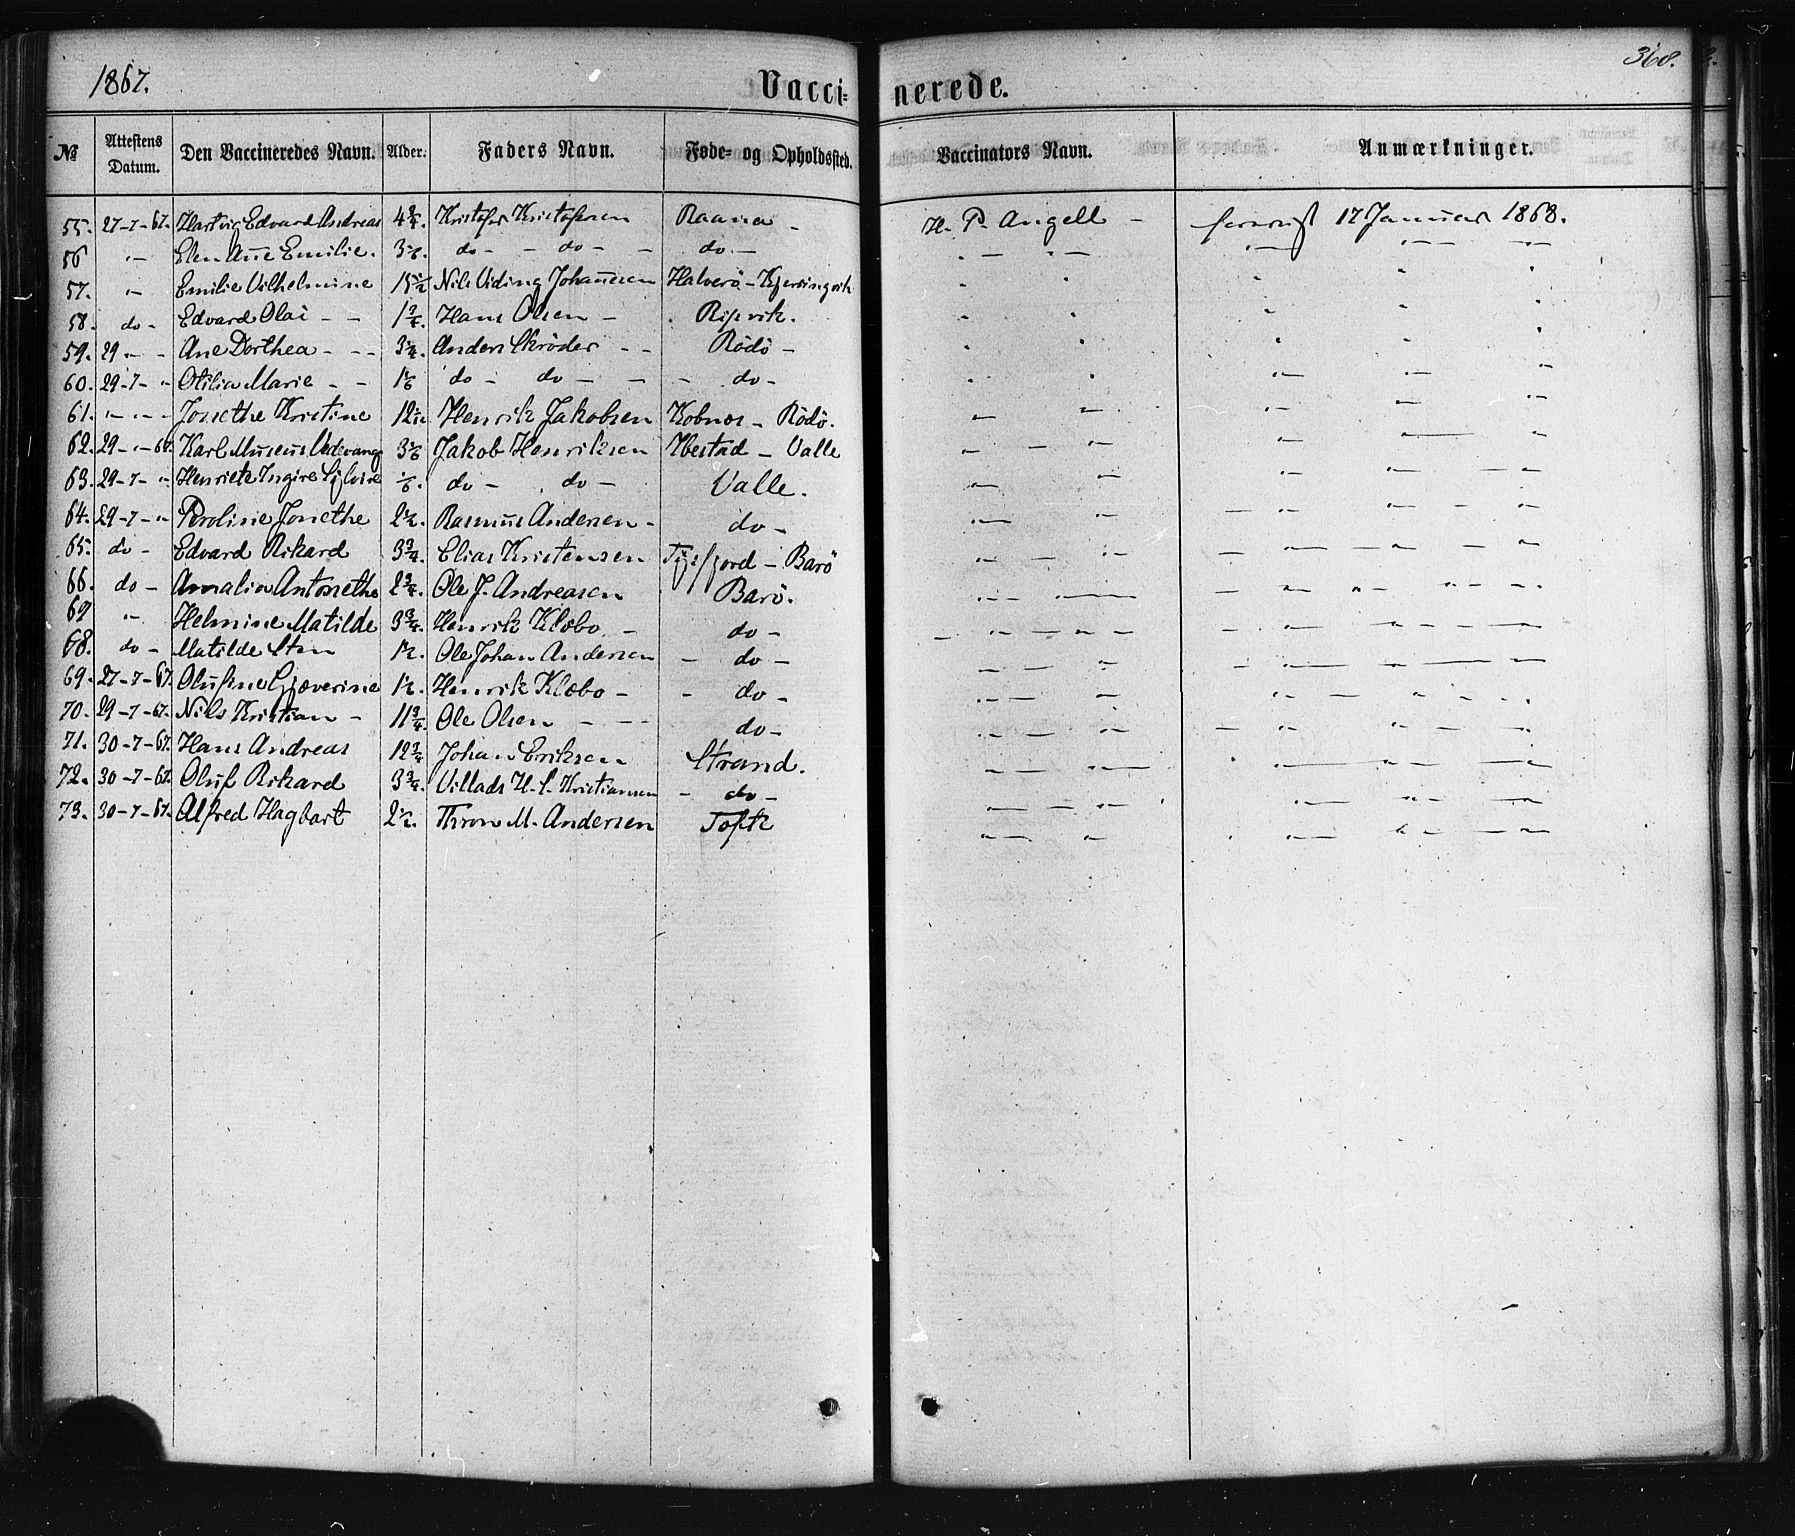 1867. Vacci= nerede. 368.
No Attestens Datum. Den Vaccineredes Navn. Alder. Faders Navn. Føde= og Opholdssted. Vaccinators Navn. Anmærkninger.
55. 27-7-67. Hartvig Edvard Andreas 4 3/4. Kristofer Kristofersen Raana - H. P. Angell - 17 Januar 1868.
56 "- Elen Ane Emilie. do - - do - - do. -
57. "- Emilie Vilhelmine 15 1/2 Nils Viding Johannesen Halverö - Kjersingvik
58. do - Edvard Olai - - 1 3/4. Hans Olsen - Ripvik.
59. 29 "- - Ane Dorthea - - - 3 1/4. Anders Skröder - - Rödö -
60. 29-7- "- Otilia Marie - - 1 1/6 do - do - - - do -
61. "- "- "- Jonethe Kristine Henrik Jakobsen Kobnes - Rödö.
62. 29-"-67. Karl 3 1/6 Jakob Henriksen Ibestad - Valle
63. 29-7- "- Henriete Ingire 1/6. do - do - Valle.
64. 29-7- "- Peroline Jonethe 2 1/2. Rasmus Andersen - do -
65. do - Edvard Rikard 3 3/4. Elias Kristensen Tysfjord - Barö
66. do - Amalia Antonethe 2 3/4. Ole J. Andreasen Barö.
67 "- Helmine Matilde 3 3/4. Henrik Klæbo - do -
68. do - Matilde Sten 1 1/2. Ole Johan Andersen - do -
69. 27-7-67. Olufine Gjæverine 1 1/2. Henrik Klæbo - - do -
70. 29-7-67. Nils Kristian - 11 3/4. Ole Olsen - - - do -
71. 30-7-67. Hans Andreas 12 3/4 Johan Eriksen Strand.
72. 30-7-67. Oluf Rikard 3 3/4. Villads H. S. Kristiansen - do -
73. 30-7-67. Alfred Hagbart 2 1/2. Thron M. Andersen Tofte